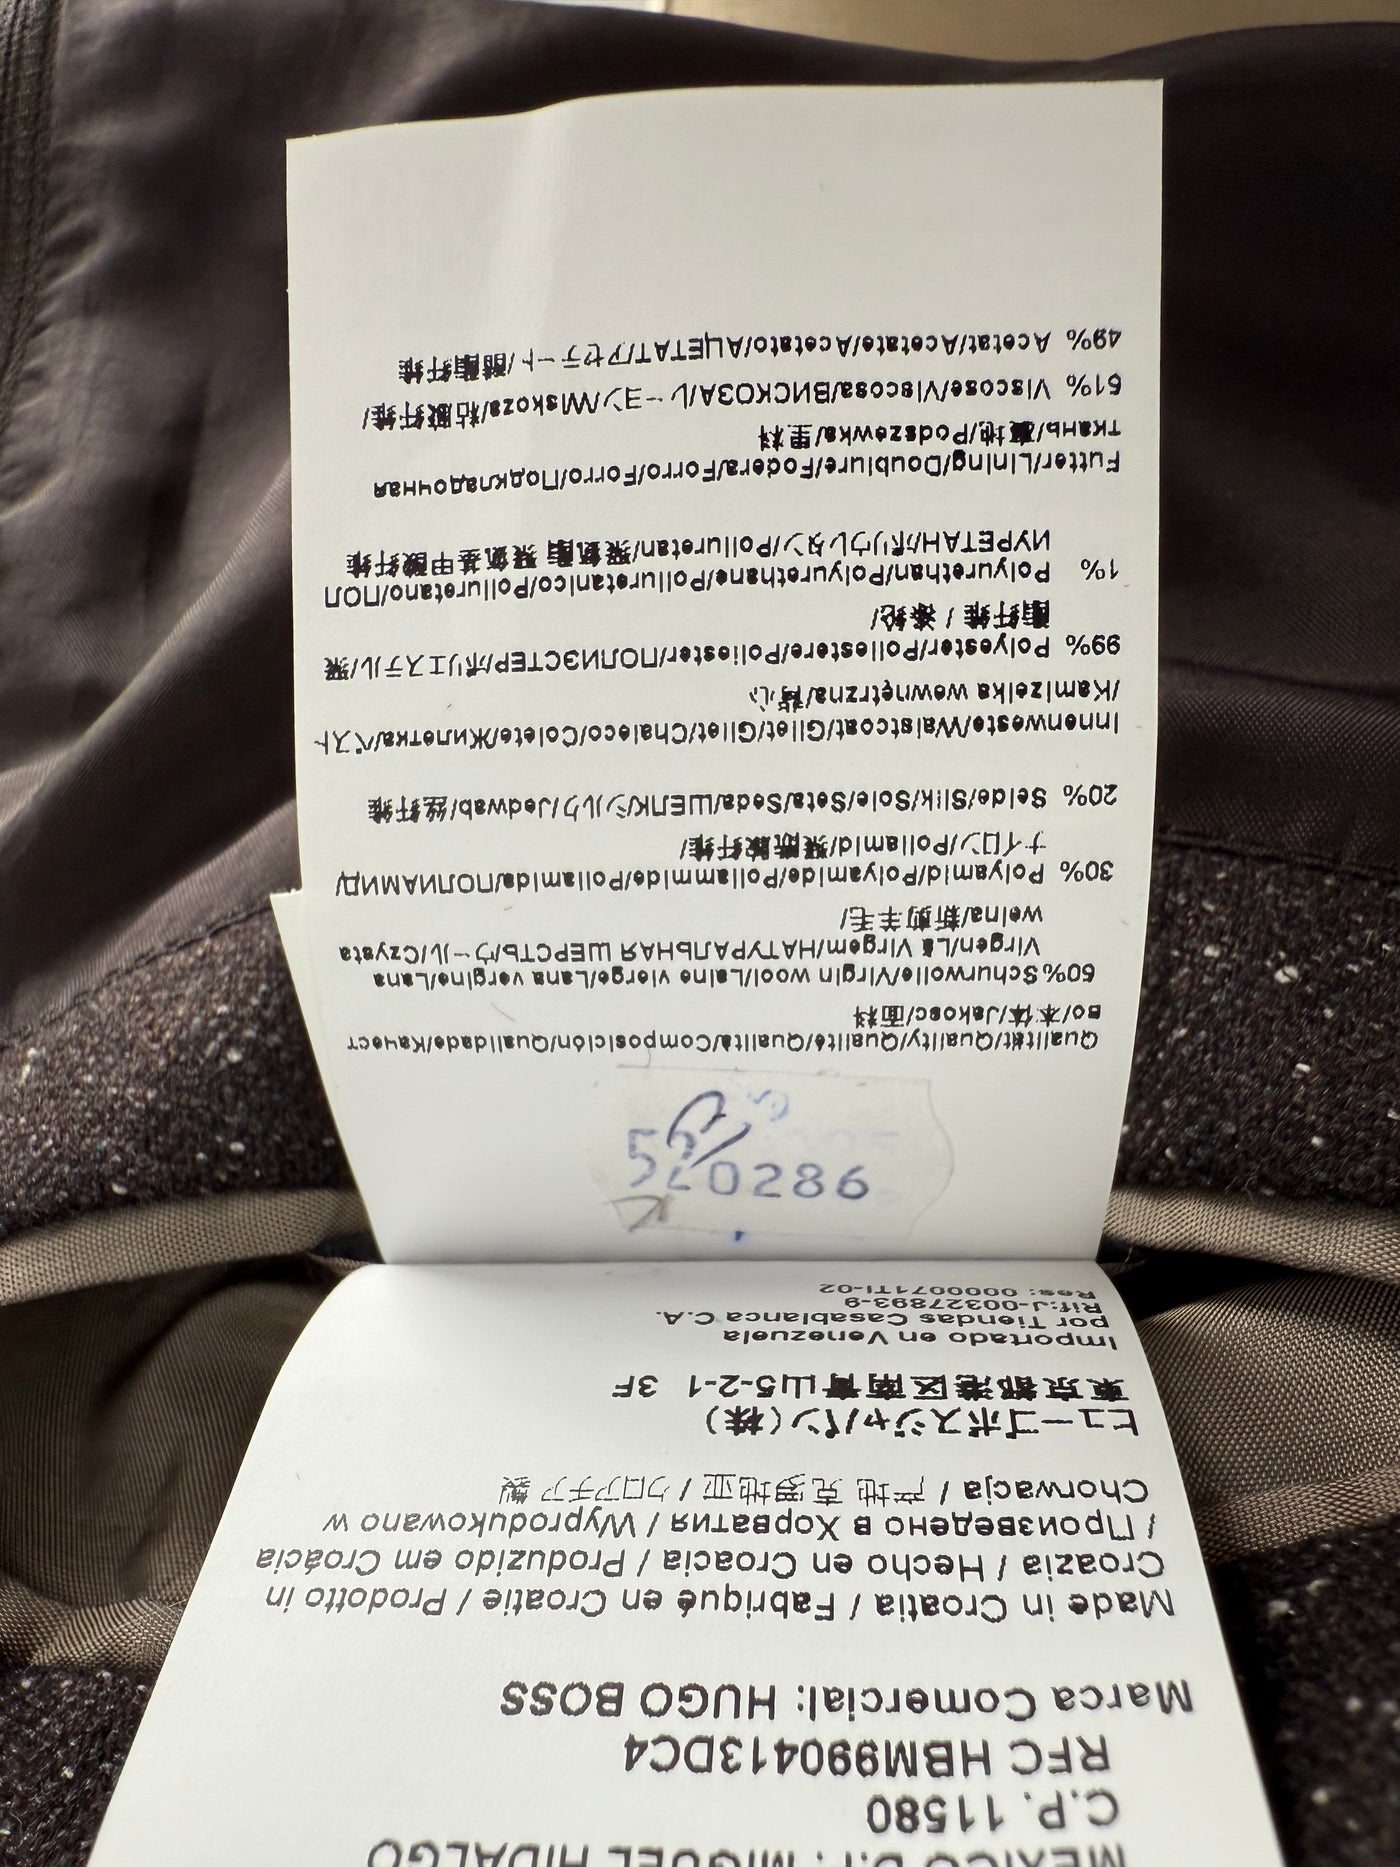 MEXICO D.F. MIGUEL HIDALGO
C.P. 11580
RFC HBM990413DC4
Marca Comercial: HUGO BOSS
Made in Croatia / Fabriqué en Croatie / Prodotto in
Croazia / Hecho en Croacia / Produzido em Croácia
/ Произведено в Хорватия / Wyprodukowano w
Chorwacja / 产地 克罗地亚 / クロアチア製
ヒューゴボスジャパン(株)
東京都港区南青山5-2-1 3F
Importado en Venezuela
por Tiendas Casablanca C.A.
Rif:J-00327893-9
Res: 0000071TI-02
520286
Qualität/Quality/Qualité/Qualità/Composición/Qualidade/Качест
во/本体/Jakosc/面料
50% Schurwolle/Virgin wool/Laine vierge/Lana vergine/Lana
Virgen/Lã Virgem/НАТУРАЛЬНАЯ ШЕРСТЬ/ウール/Czysta
welna/新剪羊毛/
30% Polyamid/Polyamide/Polyamide/Poliammide/Poliamida/ПОЛИАМИД/
ナイロン/Poliamid/聚酰胺纤维/
20% Seide/Silk/Soie/Seta/Seda/ШЕЛК/シルク/Jedwab/丝纤维
Innenweste/Waistcoat/Gilet/Gilet/Chaleco/Colete/Жилетка/ベスト
/Kamizelka wewnętrzna/背心
99% Polyester/Poliestere/Poliester/ПОЛИЭСТЕР/ポリエステル/聚
酯纤维 / 涤纶/
1% Polyurethan/Polyurethane/Poliuretanico/Poliuretano/ПОЛ
ИУРЕТАН/ポリウレタン/Poliuretan/聚氨酯 聚氨基甲酸纤维
Futter/Lining/Doublure/Fodera/Forro/Forro/Подкладочная
ткань/裏地/Podszewka/里料
51% Viscose/Viscosa/ВИСКОЗА/レーヨン/Wiskoza/粘胶纤维/
49% Acetat/Acetate/Acetato/АЦЕТАТ/アセテート/醋酯纤维